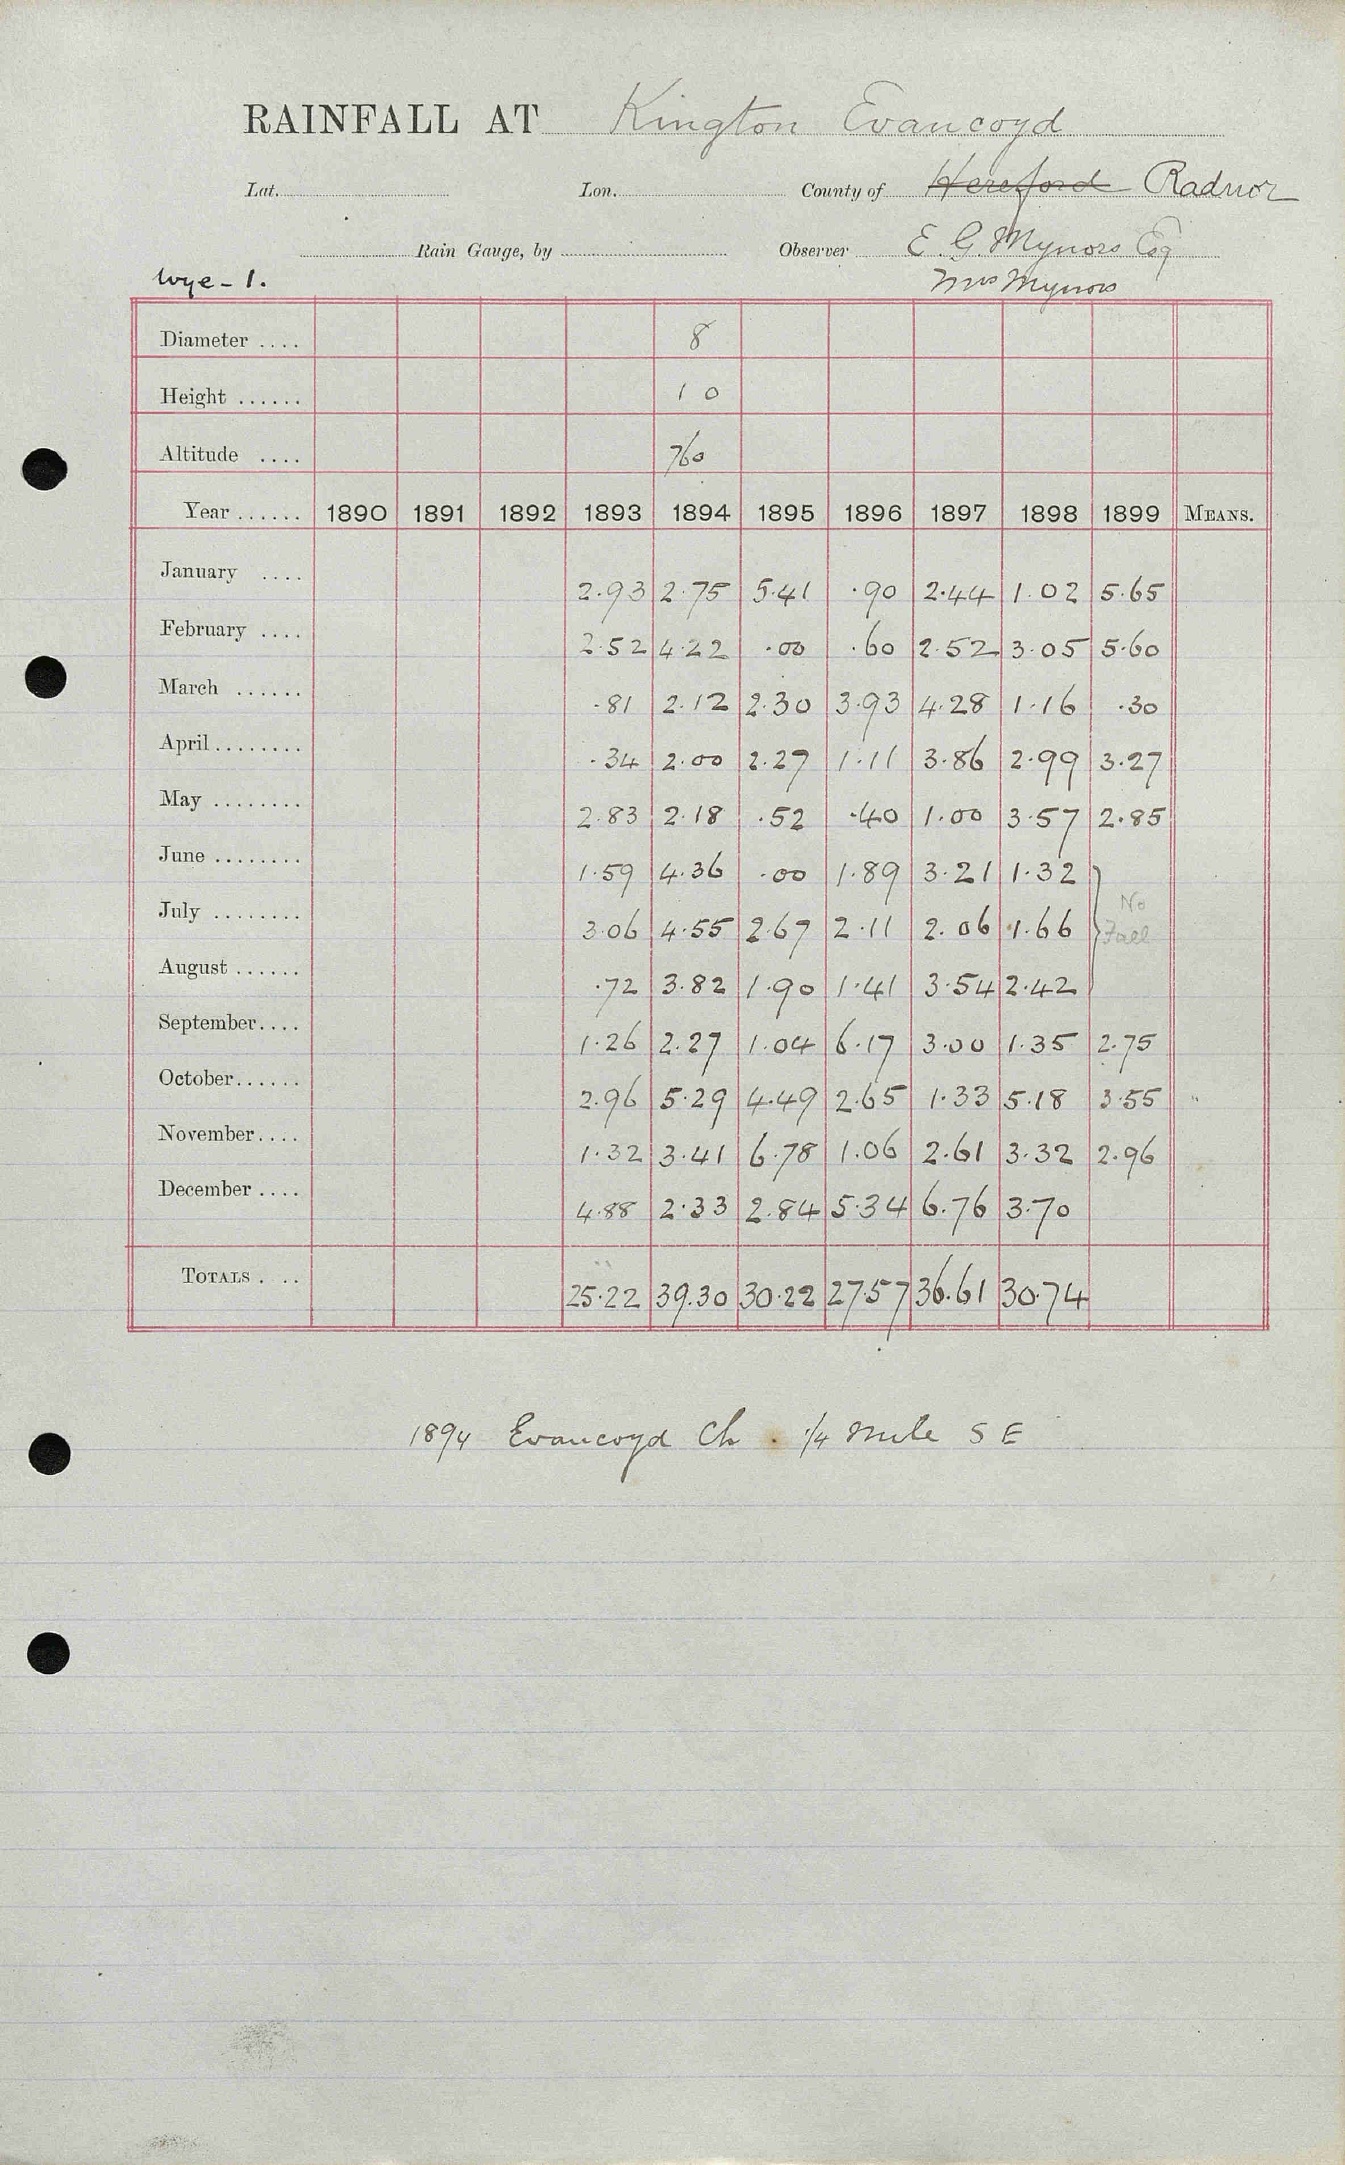 RAINFALL AT Kington Evancoyd
Lat. Lon. County of Hereford Radnor
Rain Gauge, by Observer E. G. Mynors Esq
Wye - 1. Mrs Mynors
Diameter .... 8
Height ...... 1 0
Altitude .... 760
Year ...... 1890 1891 1892 1893 1894 1895 1896 1897 1898 1899 MEANS.
January .... 2.93 2.75 5.41 .90 2.44 1.02 5.65
February .... 2.52 4.22 .00 .60 2.52 3.05 5.60
March ...... .81 2.12 2.30 3.93 4.28 1.16 .30
April ........ .34 2.00 2.27 1.11 3.86 2.99 3.27
May ........ 2.83 2.18 .52 .40 1.00 3.57 2.85
June ........ 1.59 4.36 .00 1.89 3.21 1.32
July ........ 3.06 4.55 2.67 2.11 2.06 1.66 } No Fall
August ...... .72 3.82 1.90 1.41 3.54 2.42
September.... 1.26 2.27 1.04 6.17 3.00 1.35 2.75
October...... 2.96 5.29 4.49 2.65 1.33 5.18 3.55 "
November.... 1.32 3.41 6.78 1.06 2.61 3.32 2.96
December .... 4.88 2.33 2.84 5.34 6.76 3.70
TOTALS . .. 25.22 39.30 30.22 27.57 36.61 30.74
1894 Evancoyd Ch . 1/4 mile S E